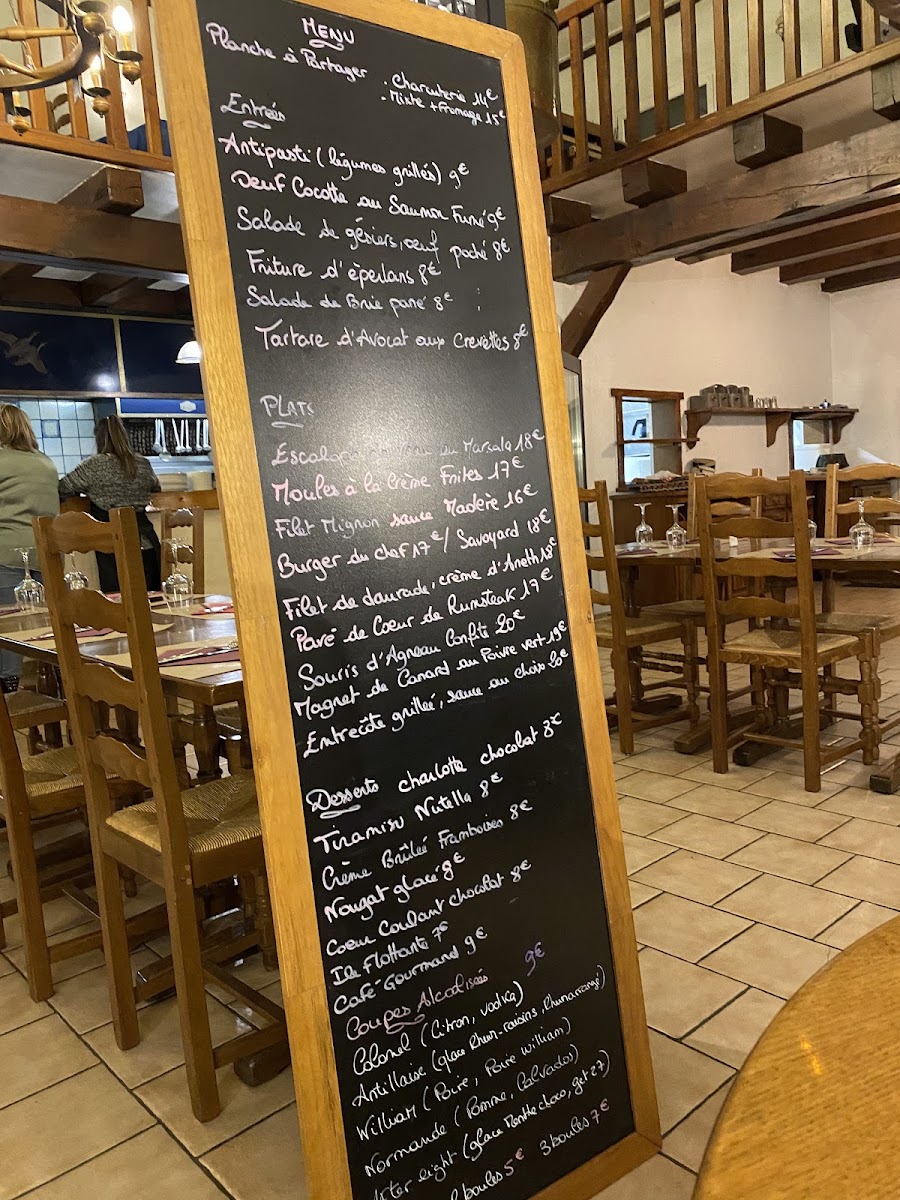 MENU
Planche à Partager . Charcuterie 14€
. Mixte + Fromage 15€
Entrées
Antipasti (légumes grillés) 9€
Oeuf Cocotte au Saumon Fumé 9€
Salade de gésiers, oeuf poché 8€
Friture d'éperlans 8€
Salade de Brie pané 8€
Tartare d'Avocat aux Crevettes 8€
PLATS
du Marsala 18€
Moules à la Crème Frites 17€
Filet Mignon sauce Madère 16€
Burger du chef 17€ / Savoyard 18€
Filet de daurade, crème d'Aneth 18€
Pavé de Coeur de Rumsteak 17€
Souris d'Agneau Confite 20€
Magret de Canard au Poivre vert 19€
Entrecôte grillée, sauce au choix 20€
Desserts charlotte chocolat 8€
Tiramisu Nutella 8€
Crème Brûlée Framboises 8€
Nougat glacé 8€
Coeur Coulant chocolat 8€
Ile Flottante 7€
Café Gourmand 9€
Coupes Alcoolisées 9€
Colonel (Citron, vodka)
Antillaise (glace Rhum-raisins, Rhum arrangé)
William (Poire, Poire William)
Normande (Pomme, Calvados)
After eight (glace Menthe choco, get 27)
2 boules 5€ 3 boules 7€